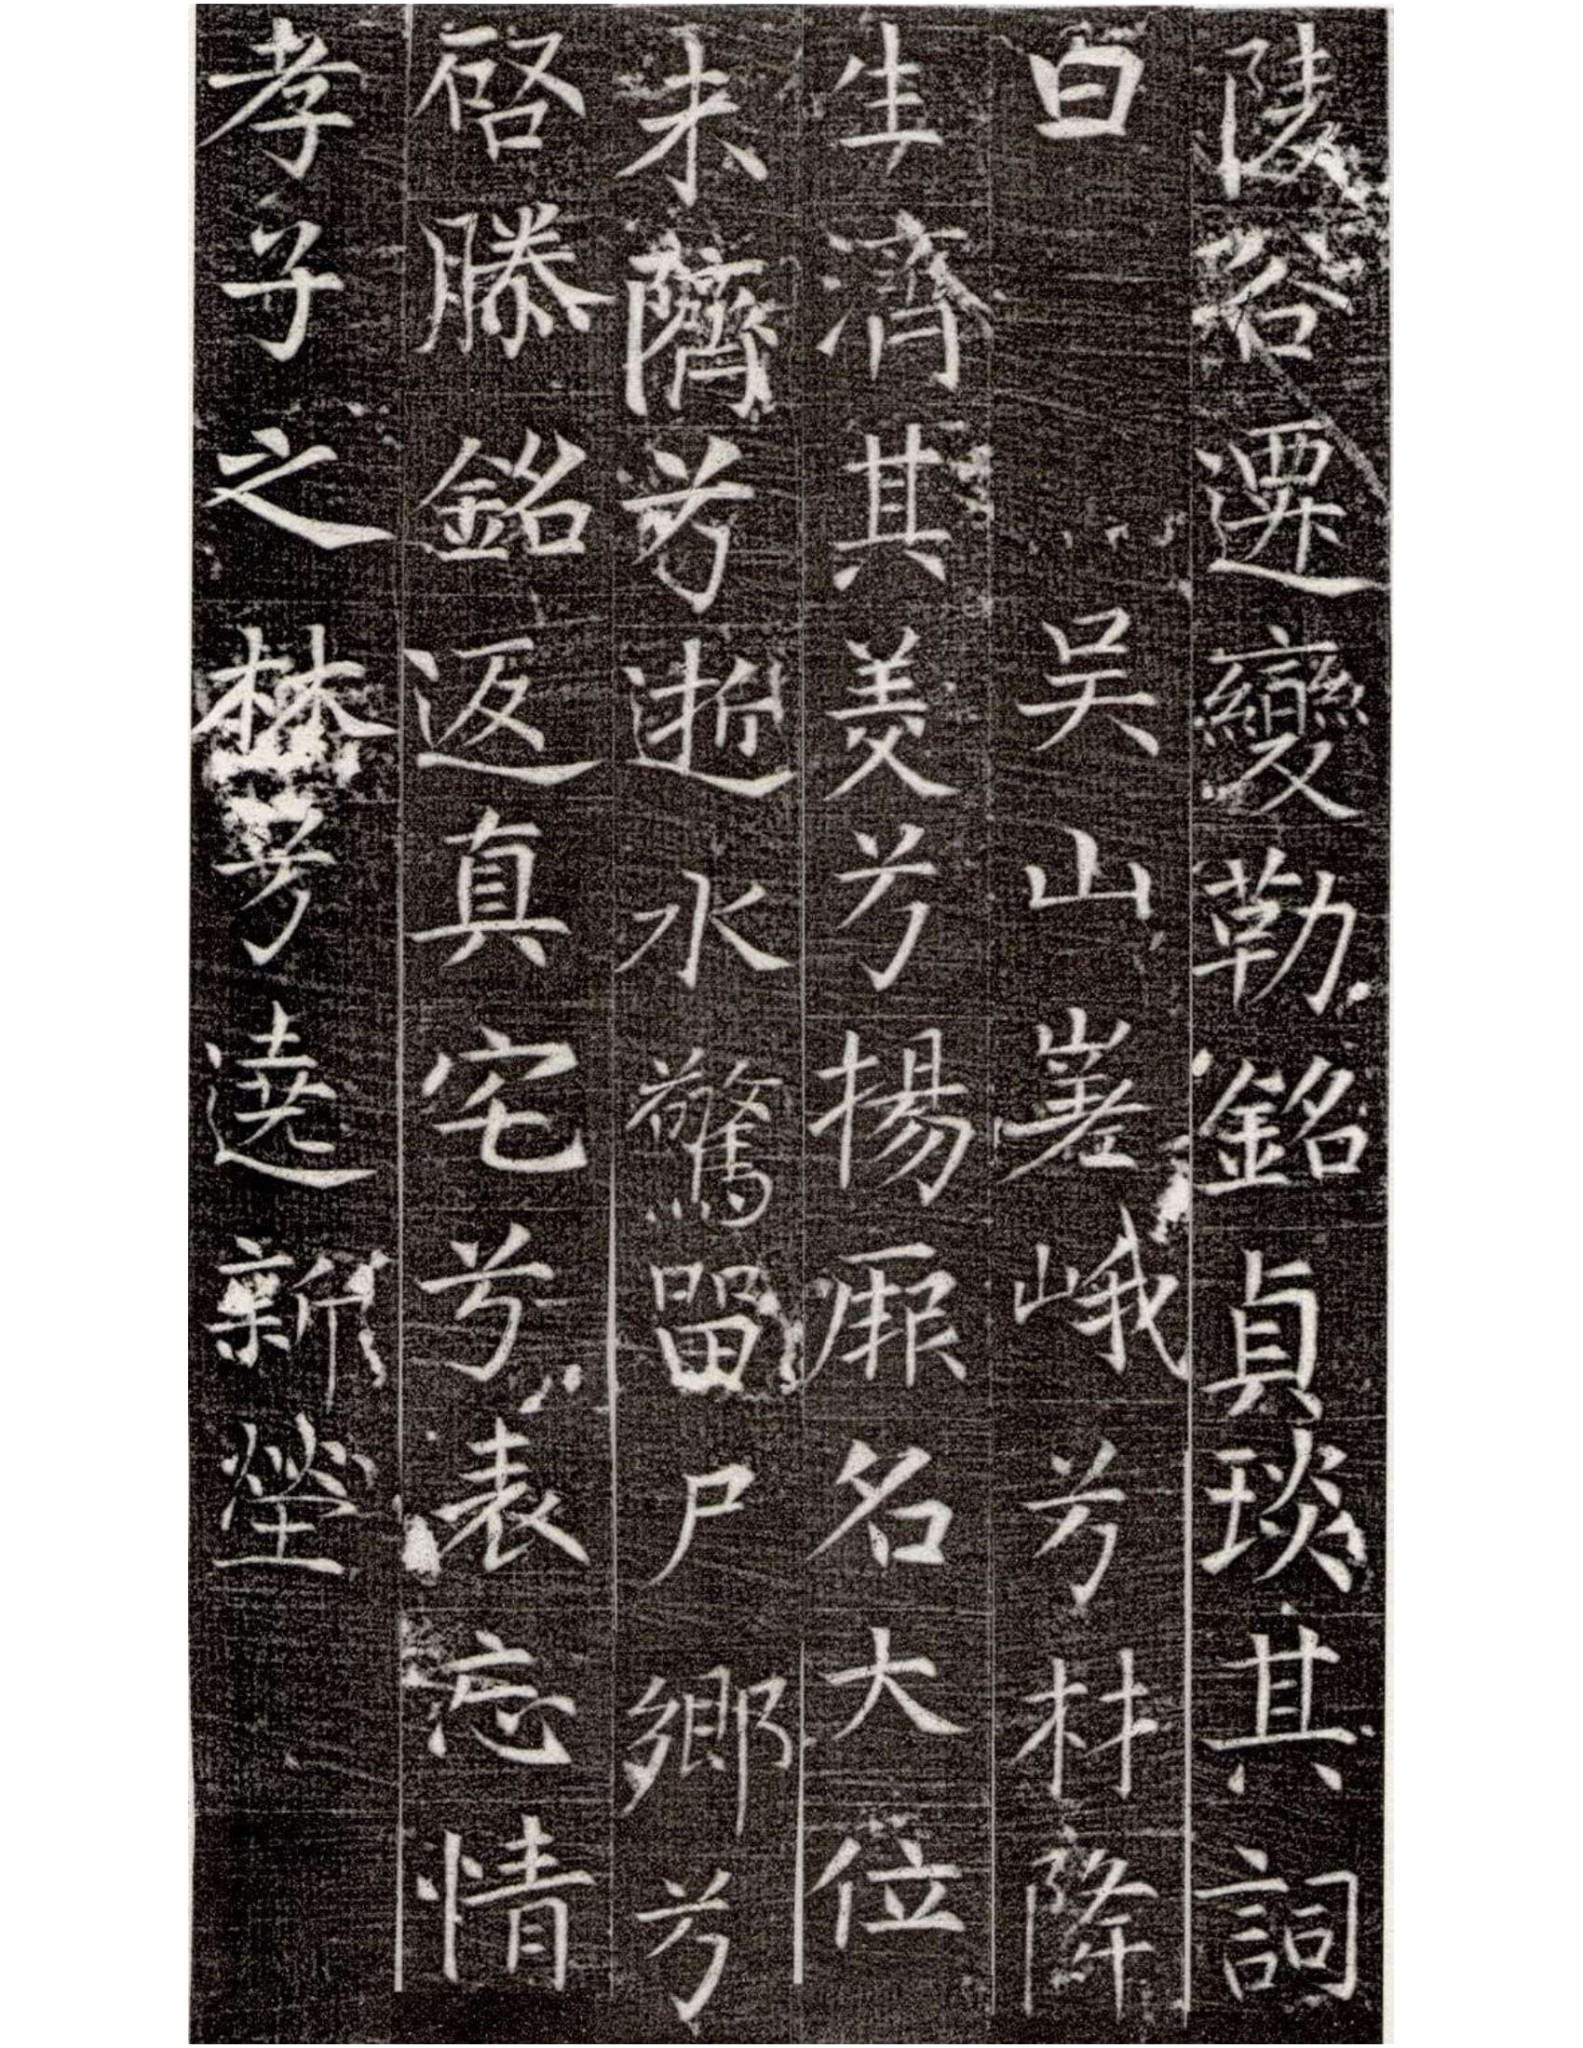 陵谷遷變勒銘貞琰其詞
曰　吳山嵳峨兮材降
生濟其美兮揚厥名大位
未隮兮逝水驚畱尸鄉兮
啓滕銘返真宅兮表忘情
孝子之林兮遶新塋